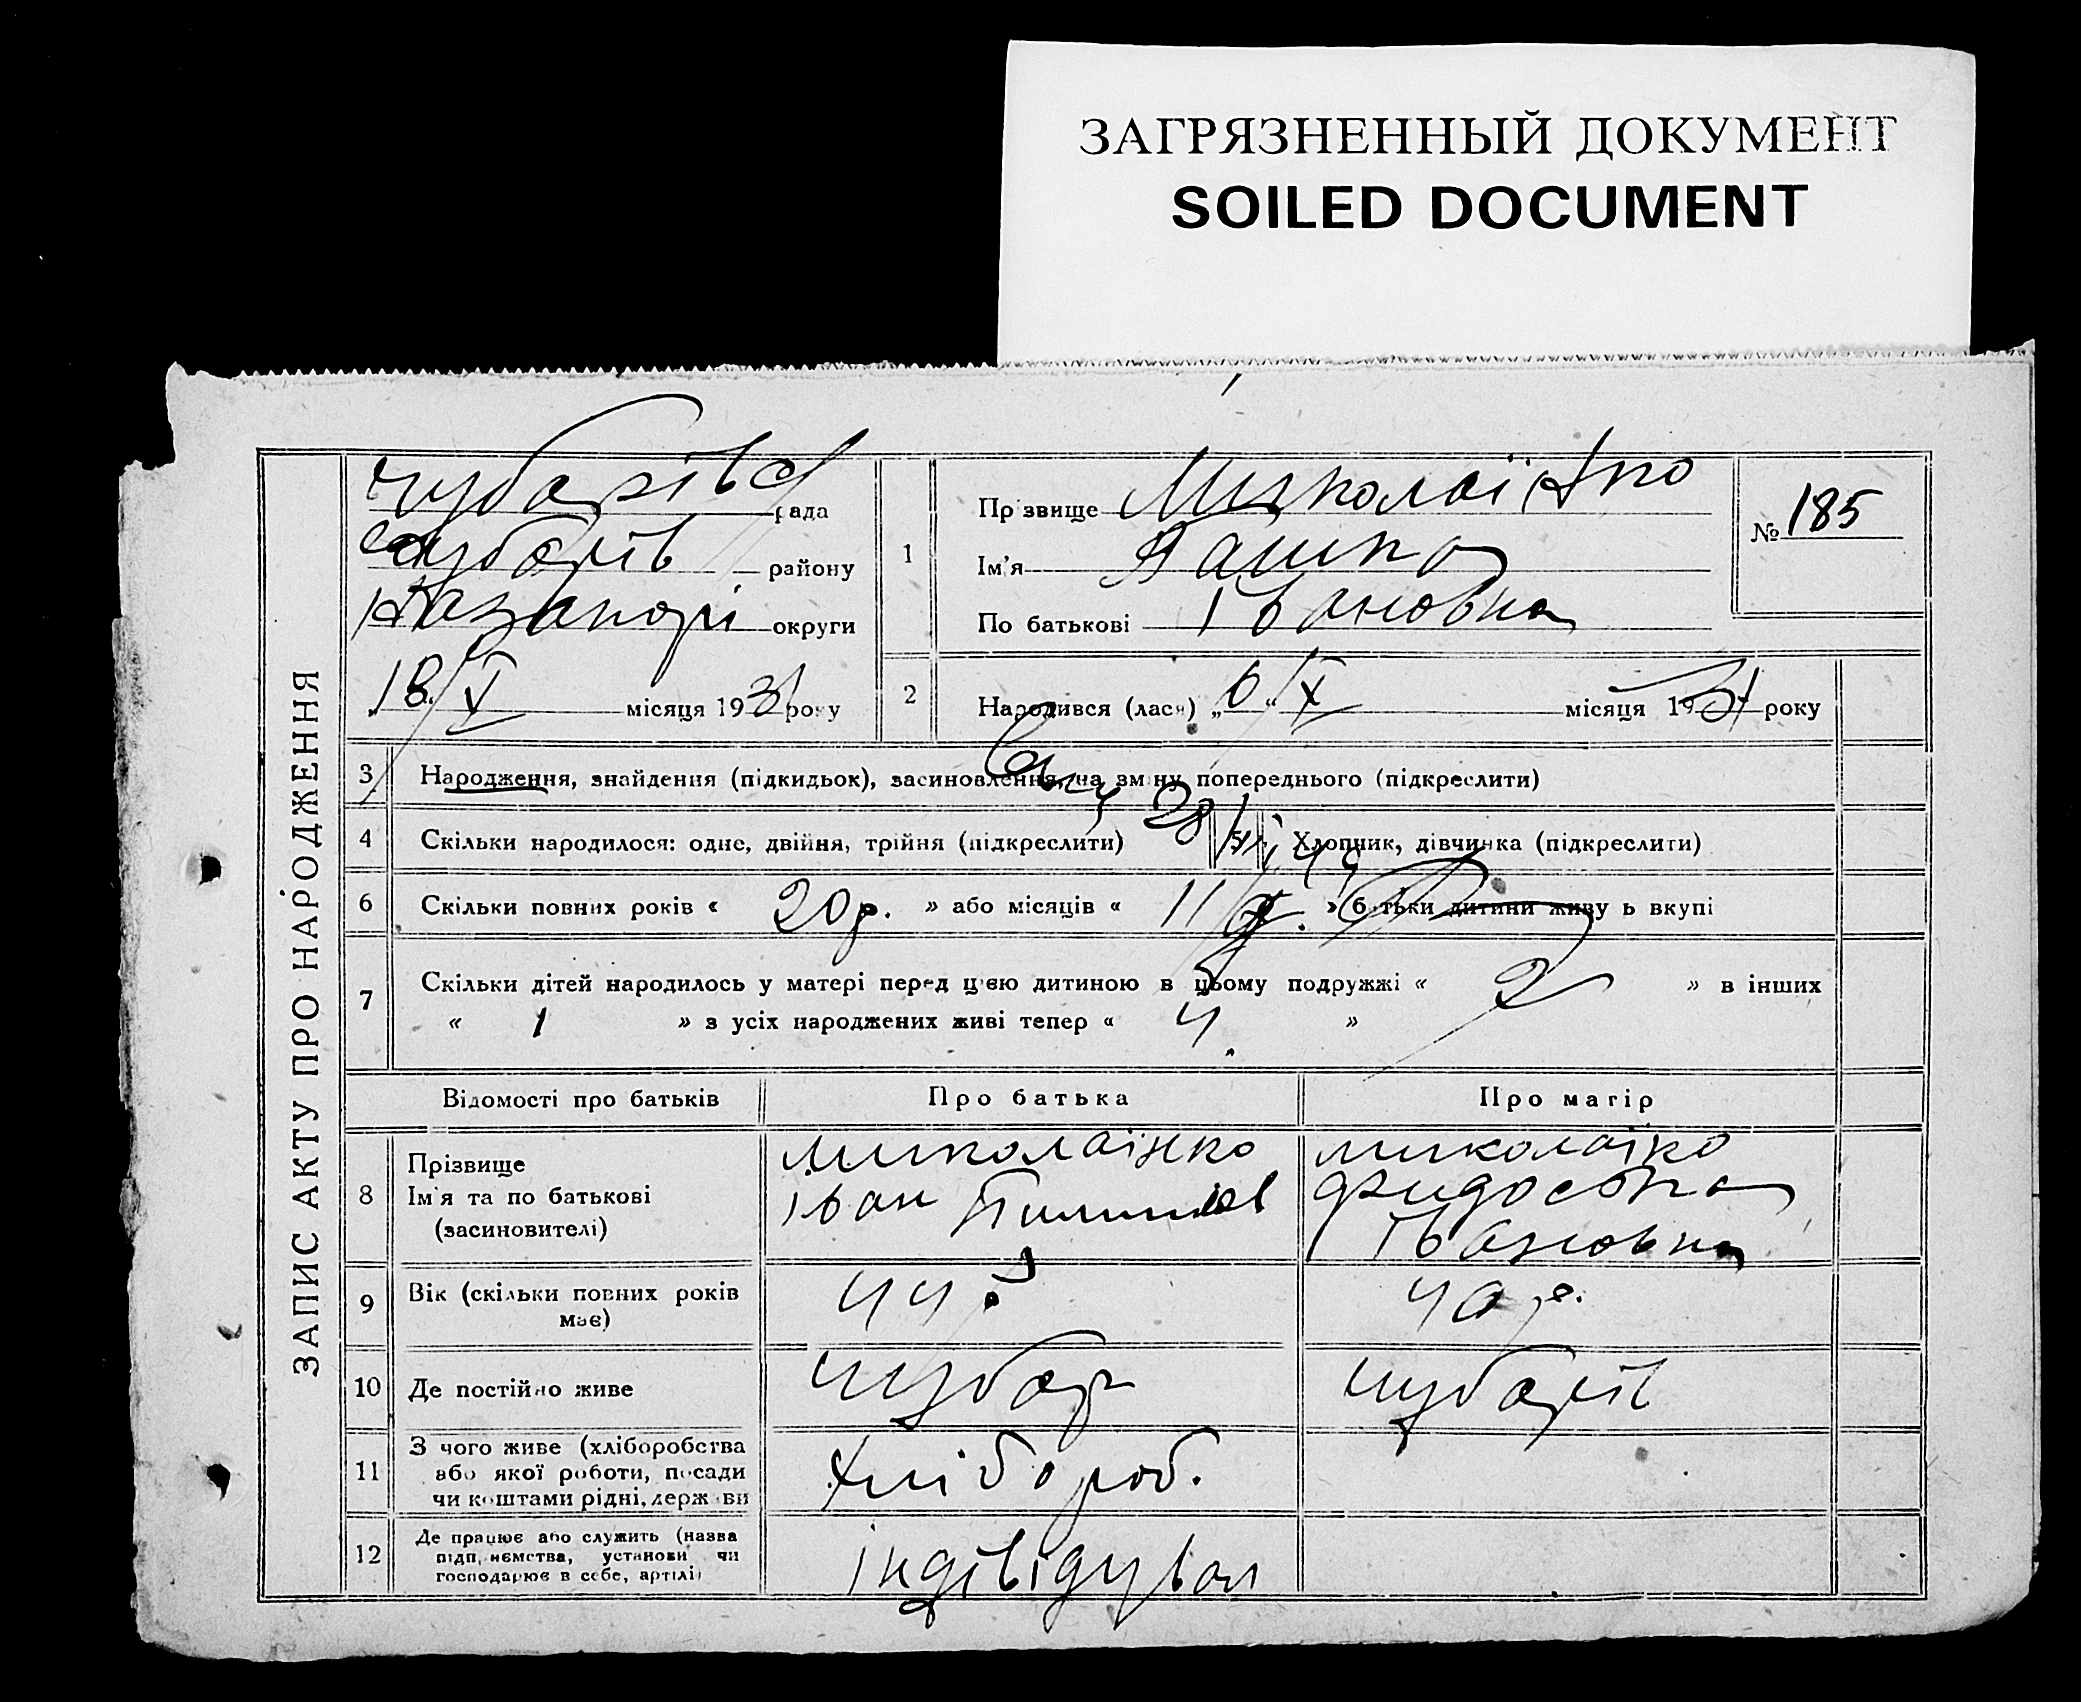 ЗАГРЯЗНЕННЫЙ ДОКУМЕНТ
SOILED DOCUMENT
ЗАПИС АКТУ ПРО НАРОДЖЕННЯ
рада
району
округи
18/V місяця 1931 року
1
Прізвище
Ім'я Пашка
По батькові Івановна
№ 185
2
Народився (лася) „ 6 “ X місяця 1931 року
3 Народження, знайдення (підкидьок), засиновлення, на зміну попереднього (підкреслити)
4 Скільки народилося: одне, двійня, трійня (підкреслити)
5 Хлопчик, дівчинка (підкреслити)
6 Скільки повних років « 20 р. » або місяців « » батьки дитини живуть вкупі
7 Скільки дітей народилось у матері перед цією дитиною в цьому подружжі « 2 » в інших
« 1 » з усіх народжених живі тепер « 4 »
Відомості про батьків Про батька Про матір
8 Прізвище
Ім'я та по батькові
(засиновителі)
Миколаінко
Іван
миколаіко
Івановна
9 Вік (скільки повних років
має)
44
40 р.
10 Де постійно живе
чубар
чубарів
11 З чого живе (хліборобства
або якої роботи, посади
чи коштами рідні, держави
хлібороб.
12 Де працює або служить (назва
підприємства, установи чи
господарює в себе, артілі)
індівідувал